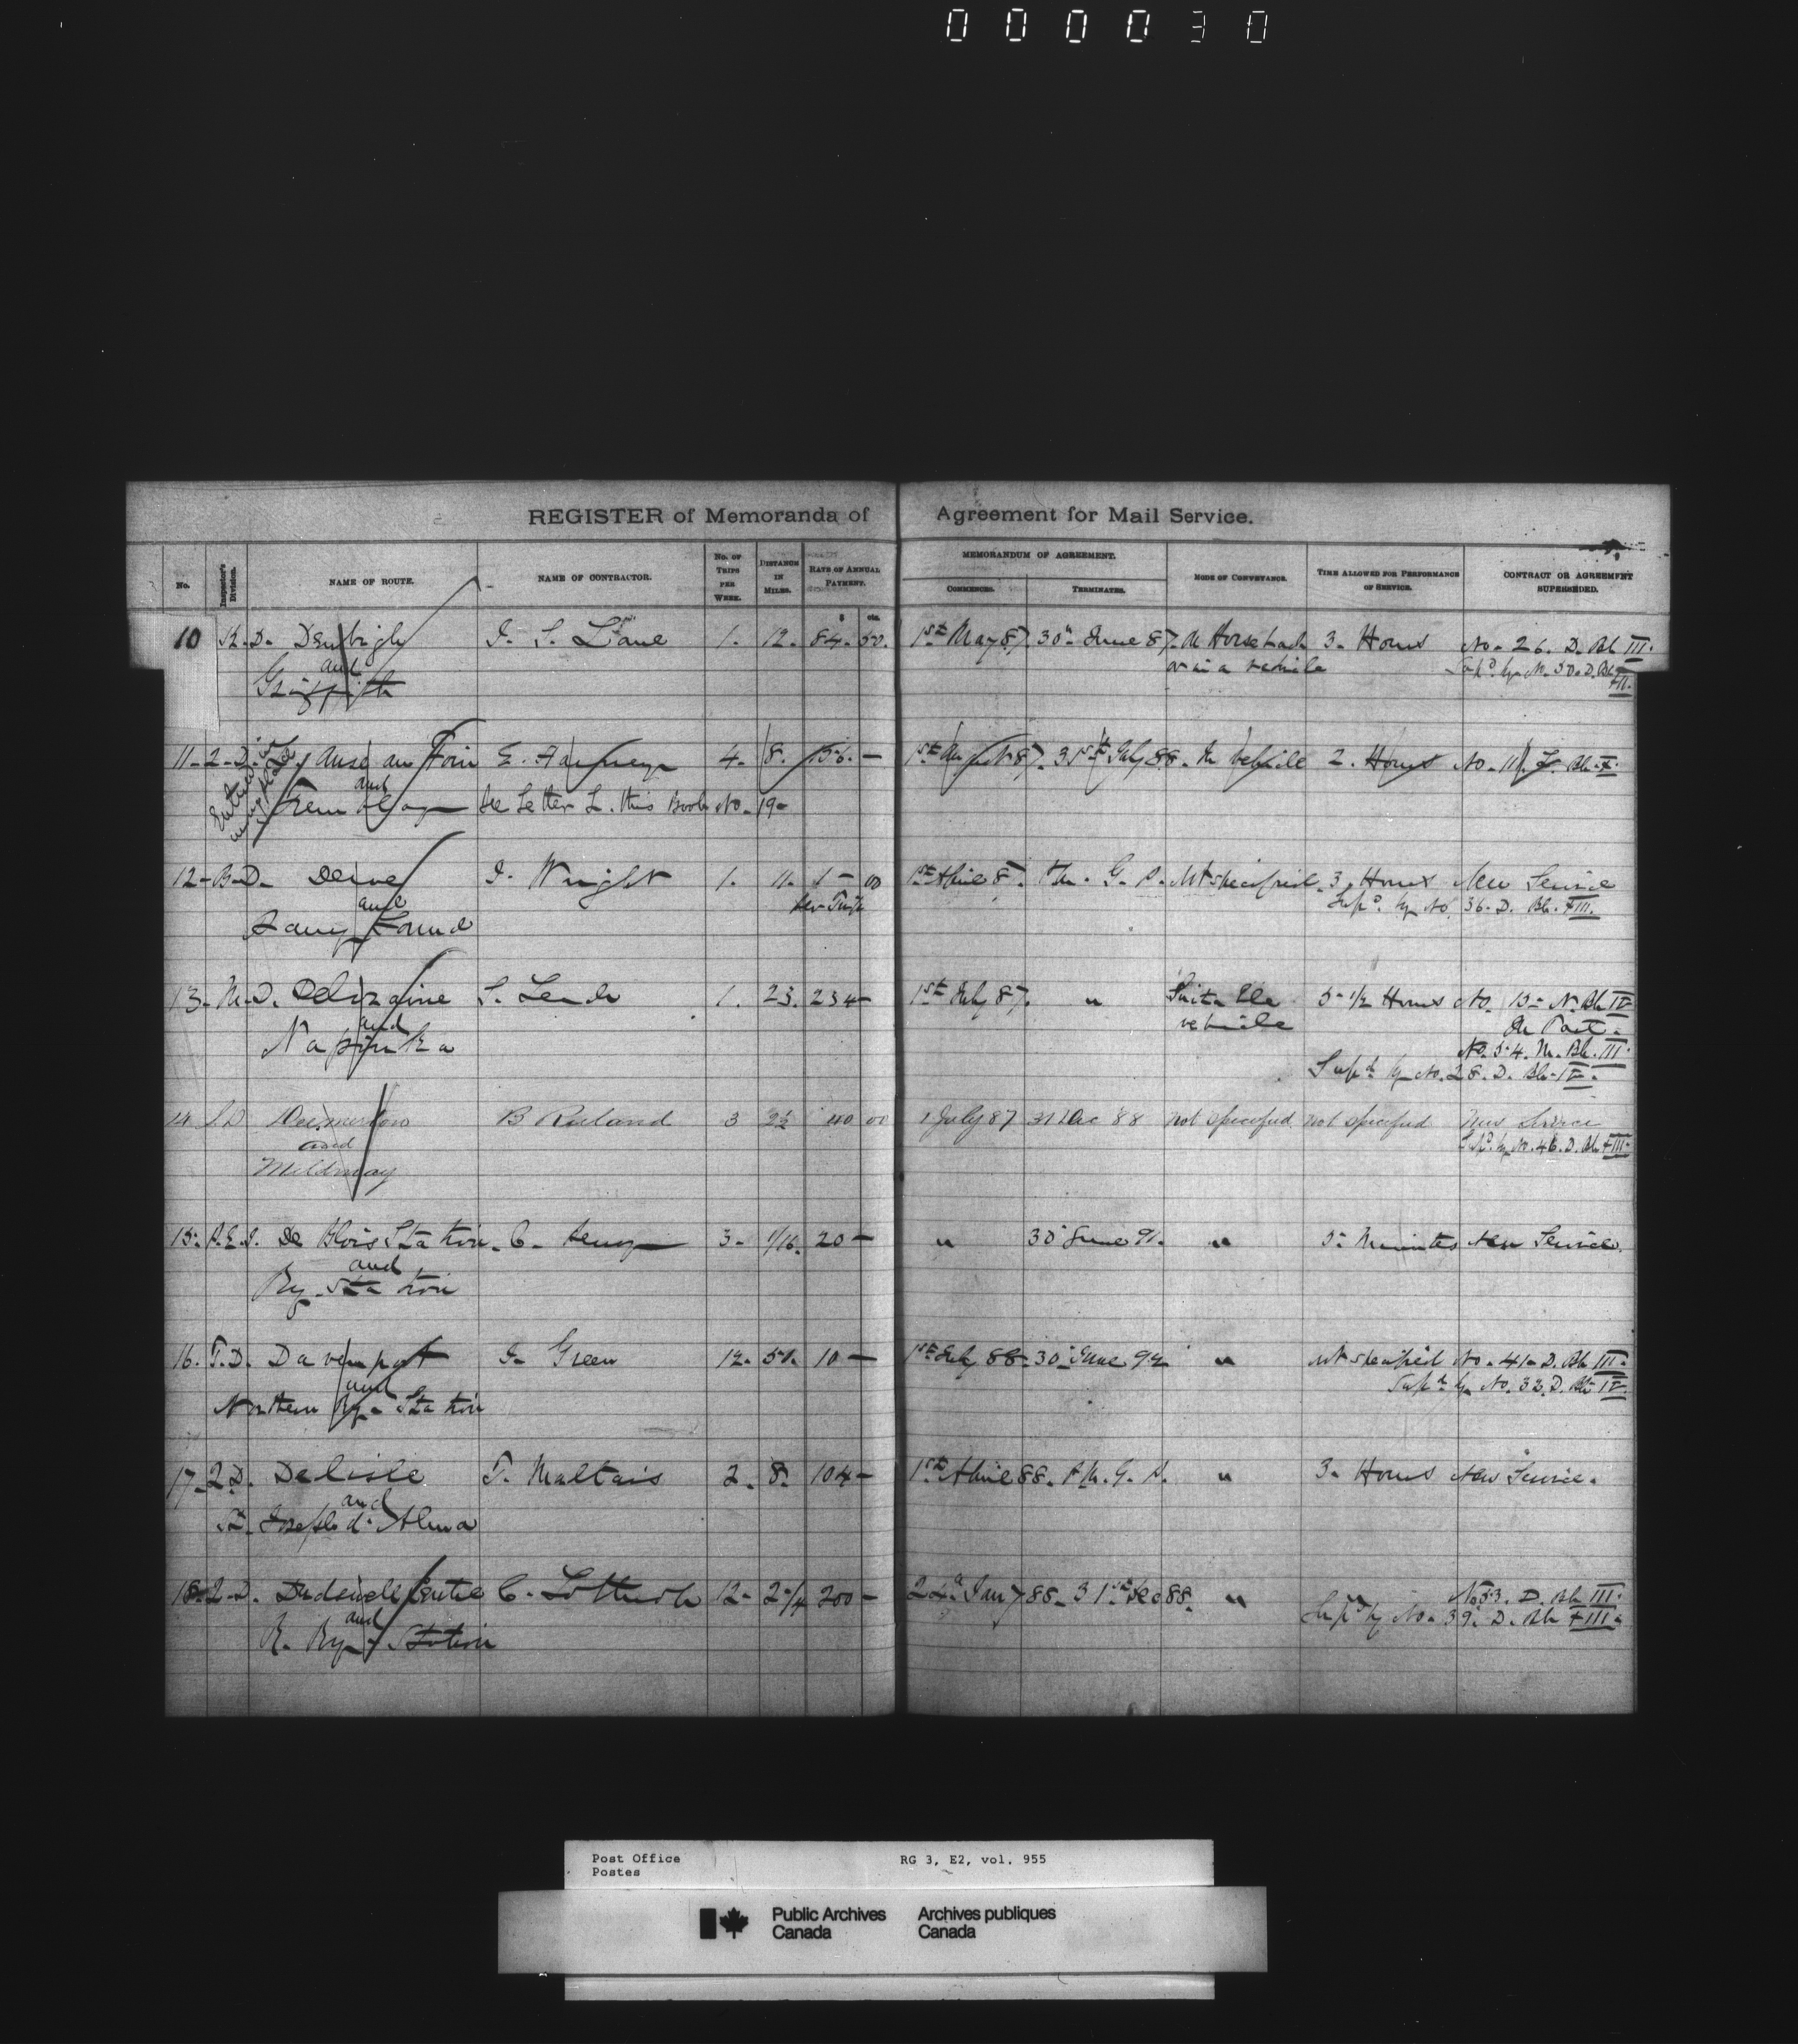 000030
REGISTER of Memoranda of Agreement for Mail Service.
No. Inspector's Division. NAME OF ROUTE. NAME OF CONTRACTOR. No. OF TRIPS PER WEEK. DISTANCE IN MILES. RATE OF ANNUAL PAYMENT. MEMORANDUM OF AGREEMENT. COMMENCES. TERMINATES. MODE OF CONVEYANCE. TIME ALLOWED FOR PERFORMANCE OF SERVICE. CONTRACT OR AGREEMENT SUPERSEDED.
$ cts.
10 K. D. Denbigh J. S. Lane 1. 12. 84. 50. 1st May 87. 30" June 87. On Horseback 3. Hours No. 26. D. Bk III.
and or in a vehicle Supd. by No. 50. D. Bk
Griffith
11 - 2 - D. L'Anse au Foin E. 4. 8. 156. — 31st July 88. In Vehicle 2. Hours No. 11.
and
Tremblay See Letter L. this Book No. 19 -
12 - B - D. J. Wright 1. 11. 1 - 00 1st April 87. P.M.G.P. Not specified. 3. Hours New Service
and per Trip Supd. by No. 36. D. Bk.
Parry Sound
13 - M - D. Deloraine S. 1. 23. 234 — 1st July 87. " Suitable 5 - 1/2 Hours No. 15 - N. Bk IV
and vehicle In Part.
Napinka No. 54. M. Bk. III.
Supd. by No. 28. D. Bk. IV.
14 D B Ruland 3 2½ 40 00 1 July 87 31 Dec 88 not specified not specified New Service
and Supd. by No. 46. D. Bk
Mildmay
15. P.E.I. De Blois Station. C. 3 - 1/16. 20 — " 30 June 91. " 5 - Minutes New Service.
and
Ry. Station
16. T. D. Davenport J. Green 12. 10 — 1st July 88. 30 June 92 " Not specified No. 41 - D. Bk III.
and Supd. by No. 32. D. Bk. IV.
Northern Ry. Station
17 - 2 D. Delisle T. Maltais 2. 8. 104 — 1st April 88. P.M.G.P. " 3. Hours New Service.
and
St. Joseph d'Alma
18 - 2 - D. Dudswell Centre C. Lothrop 12 - 2 1/4 200 — 24" Jany 88. 31st Dec 88. " No 53. D. Bk III.
and Supd. by No. 39. D. Bk
R. Ry. Station
Post Office RG 3, E2, vol. 955
Postes
Public Archives Archives publiques
Canada Canada